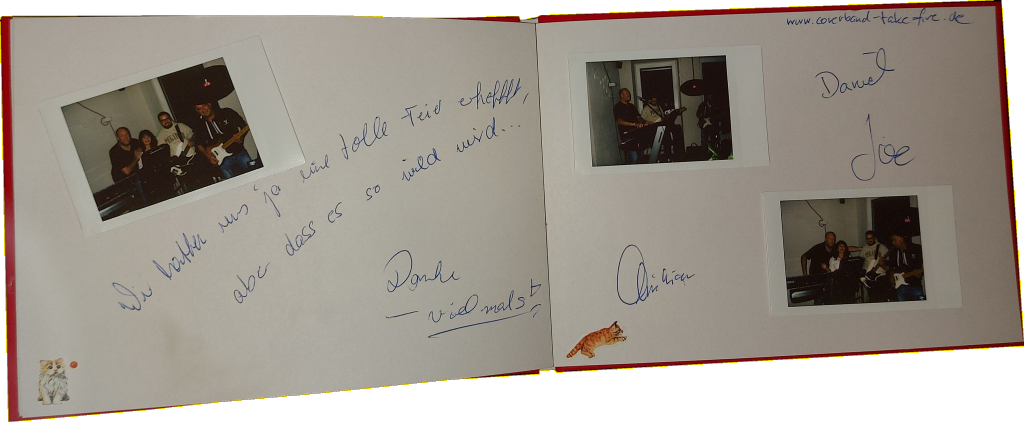 Wir hatten uns ja eine tolle Feier erhofft,
aber dass es so wild wird...
Danke
— vielmals!
www.coverband-take-fire.de
Daniel
Joe
Christian